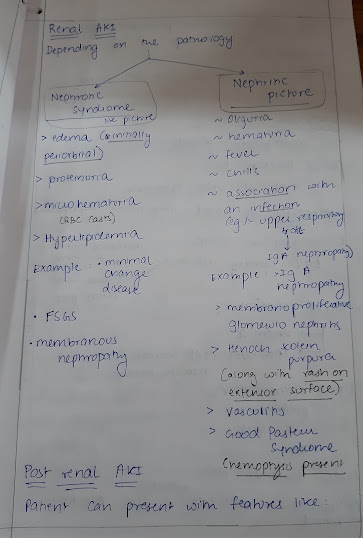 Renal AKI
Depending on the pathology
Nephrotic
Syndrome
like picture
> edema (Eminally
periorbital)
> proteinuria
> micro hematuria
(RBC casts)
> Hyperlipidemia
Example : • minimal
change
disease
• FSGS
• membranous
nephropathy
Nephritic
picture
~ Oliguria
~ hematuria
~ fever
~ chills
~ association with
an infection
(eg:- upper respiratory
↓
IgA nephropathy)
Example : > Ig A
nephropathy
> membranoproliferative
glomerulo nephritis
> Henoch
purpura
(along with rash on
extensor surface)
> Vasculitis
> Good Pasteur
Syndrome
(hemoptysis present
Post renal AKI
Patient can present with features like: